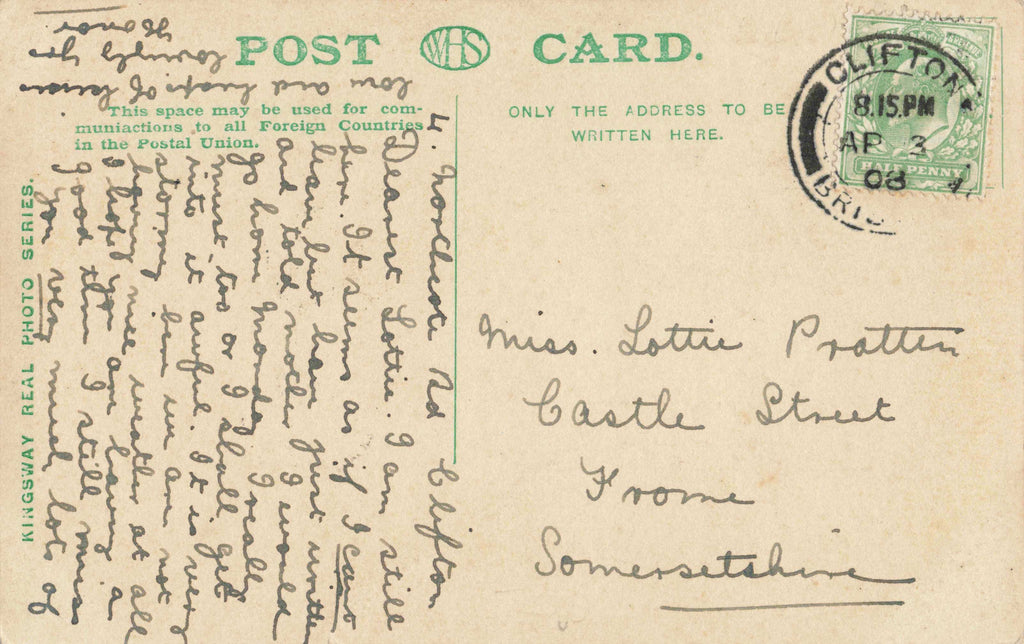 POST WHS CARD.
This space may be used for com-
muniactions to all Foreign Countries
in the Postal Union.
ONLY THE ADDRESS TO BE
WRITTEN HERE.
CLIFTON
8.15.PM
AP 3
08
BRIS
HALFPENNY
KINGSWAY REAL PHOTO SERIES.
Miss. Lottie Pratten
Castle Street
Frome
Somersetshire
4. Rd Clifton
Dearest Lottie. I am still
here. It seems as if I cant
leave but have just written
and told mother I would
go home Monday I really
must too or I shall get
into it awful. It is very
stormy here we are not
having nice weather at all
I hope you are having a
good time I still miss
you very much lots of
love and heaps of kisses
lovingly yrs